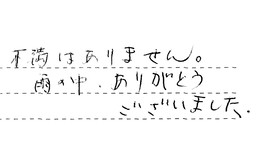 不満はありません。
雨の中、ありがとう
ございました.